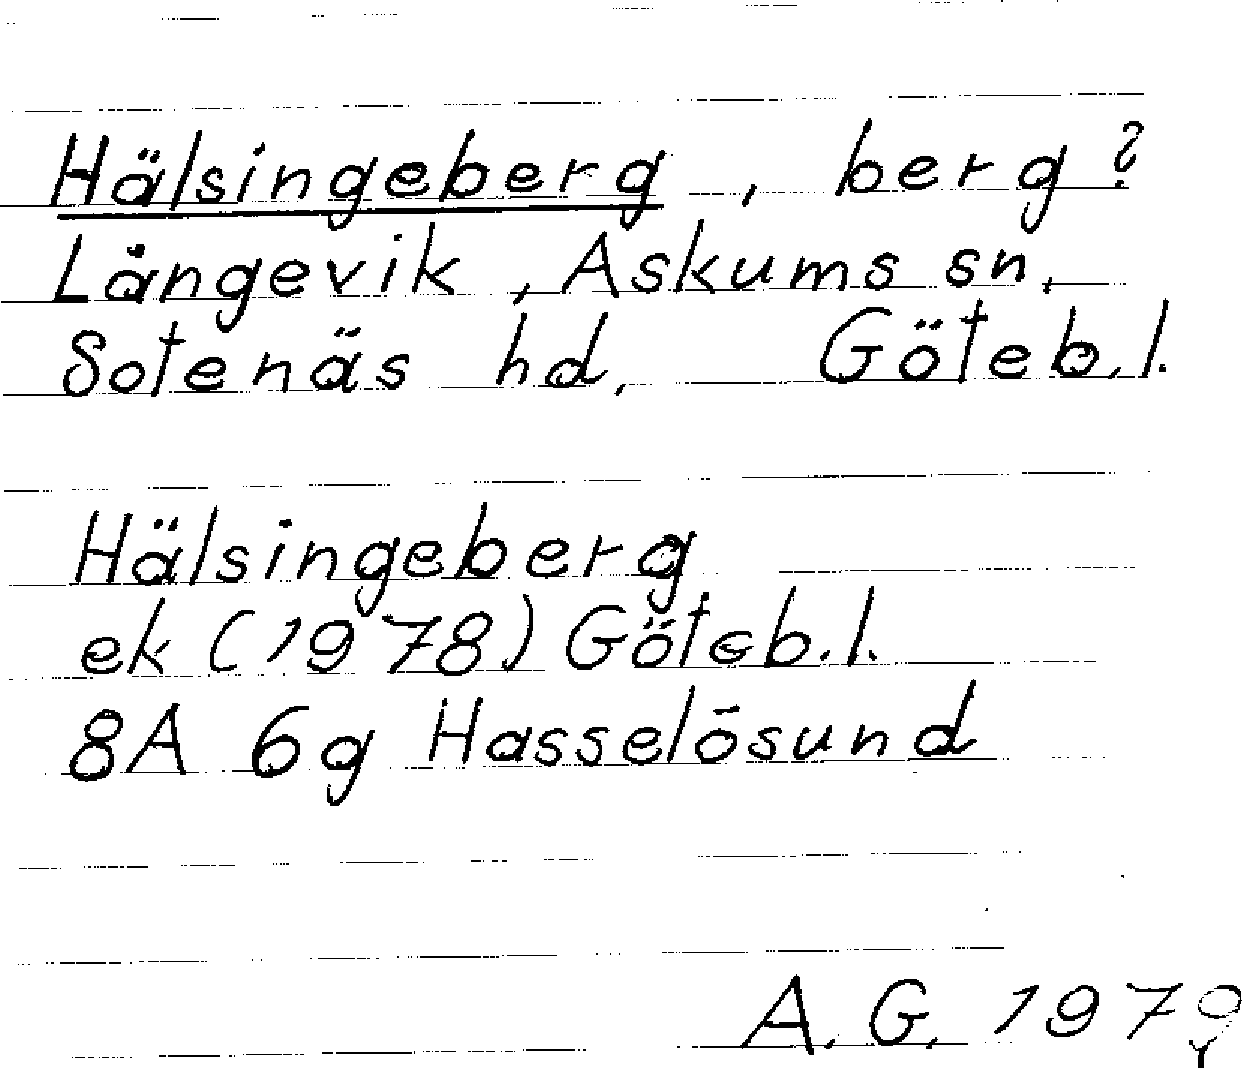 Hälsingeberg, berg?
Långevik, Askums sn,
Sotenäs hd, Göteb.l.
Hälsingeberg
ek (1978) Göteb.l.
8A 6g Hasselösund
A.G. 1979